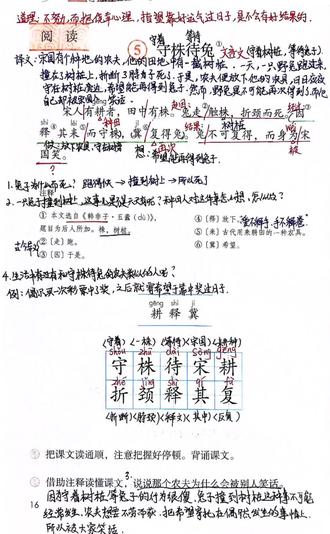 道理：不努力，而抱侥幸心理，指望靠好运气过日子，是不会有好结果的。
阅读
守着 等待
⑤ 守株待兔① 文言文（守着树桩，等待兔子）
译文：宋国有个种地的农夫，他的田地中有一截树桩。一天，一只野兔跑过来，
撞在了树桩上，折断了脖子死了。于是，农夫便放下他的农具，日日夜夜
守在树桩旁边，希望能再得到兔子。然而，野兔是不可能再次得到了，而他
自己却被宋国人笑话。
宋人有耕者，田中有株。兔走②触株，折颈而死。因③
释④其耒⑤而守株，冀⑥复得兔。兔不可复得，而身为宋
国笑。
想：希望能再得到兔子。
1.兔子为什么而死？跑得快→撞到树上→所以死
注释
① 本文选自《韩非子·五蠹（dù）》，
题目为后人所加。株，树桩。
②〔走〕跑。
③〔因〕于是。
④〔释〕放下。“爱不释手、手不释卷”
⑤〔耒〕古代用来耕田的一种农具。
⑥〔冀〕希望。
gēng shì jì
耕 释 冀
（守着）（一株）（等待）（宋国）（耕种）
shǒu zhū dài sòng gēng
守 株 待 宋 耕
zhé jǐng shì qí fù
折 颈 释 其 复
（折断）（脖颈）（释文）（其中）（反复）
把课文读通顺，注意把握好停顿。背诵课文。
3.
借助注释读懂课文，说说那个农夫为什么会被别人笑话。
因为守着树桩等兔子的行为很傻，兔子撞到树桩这种事不可能
经常发生，农夫想要不劳而获，把希望寄托在偶然发生的事情上，
所以被大家笑话。
16